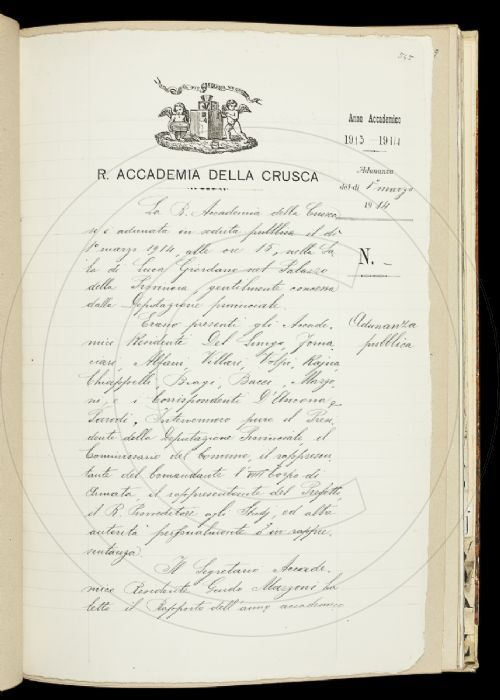 545
R. ACCADEMIA DELLA CRUSCA
Anno Accademico
1913 - 1914
Adunanza
del dì 1° marzo
1914
N. -
Adunanza
pubblica
La R. Accademia della Crusca
si è adunata in seduta pubblica il dì
1° marzo 1914, alle ore 15, nella Sa-
la di Luca Giordano nel Palazzo
della Provincia, gentilmente concessa
dalla Deputazione provinciale.
Erano presenti gli Accade-
mici Residenti Del Lungo, Tom-
masi, Alfani, Villari, Volpi, Rajna,
Chiappelli, Biagi, Bacci, Mazzo-
ni, e i Corrispondenti D'Ancona e
Parodi. Intervennero pure il Presi-
dente della Deputazione Provinciale, il
Commissario del Comune, il rappresen-
tante del Comandante l'VIII Corpo di
Armata, il rappresentante del Prefetto,
il R. Provveditore agli Studj, ed altre
autorità personalmente o in rappre-
sentanza.
Il Segretario Accade-
mico Residente Guido Mazzoni ha
letto il Rapporto dell'anno accademico